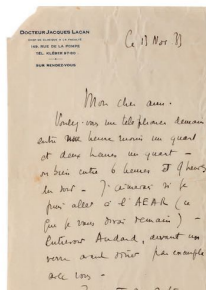 DOCTEUR JACQUES LACAN
149, RUE DE LA POMPE
TEL. KLÉBER
SUR RENDEZ-VOUS
Ce 13 Nov 33
Mon cher ami.
Voulez-vous me téléphoner demain
entre une heure moins un quart
et deux heures un quart –
ou bien entre 6 heures et 9 heures
du soir – J'aimerais si je
puis aller à l'AEAR (ce
que je vous dirai demain) –
entrevoir Audard, devant un
verre avant dîner par exemple
avec vous –